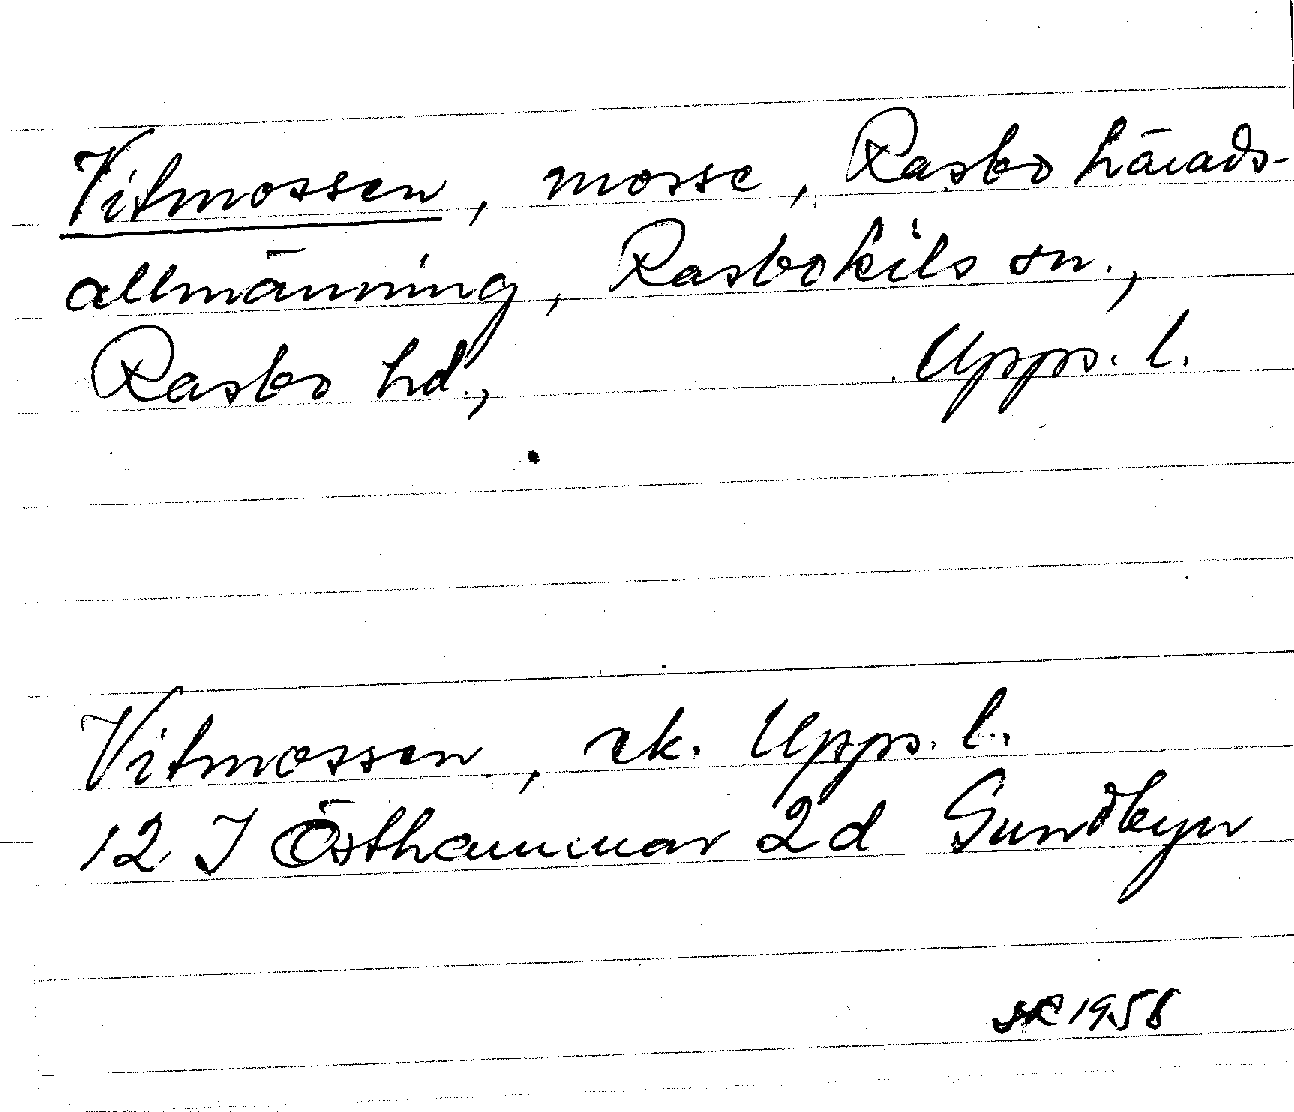 Vitmossen, mosse, Rasbo härads-
allmänning, Rasbokils sn.,
Rasbo hd., Upps. l.
Vitmossen, ek. Upps. l.
12 I Östhammar 2d Sundbyn
1958